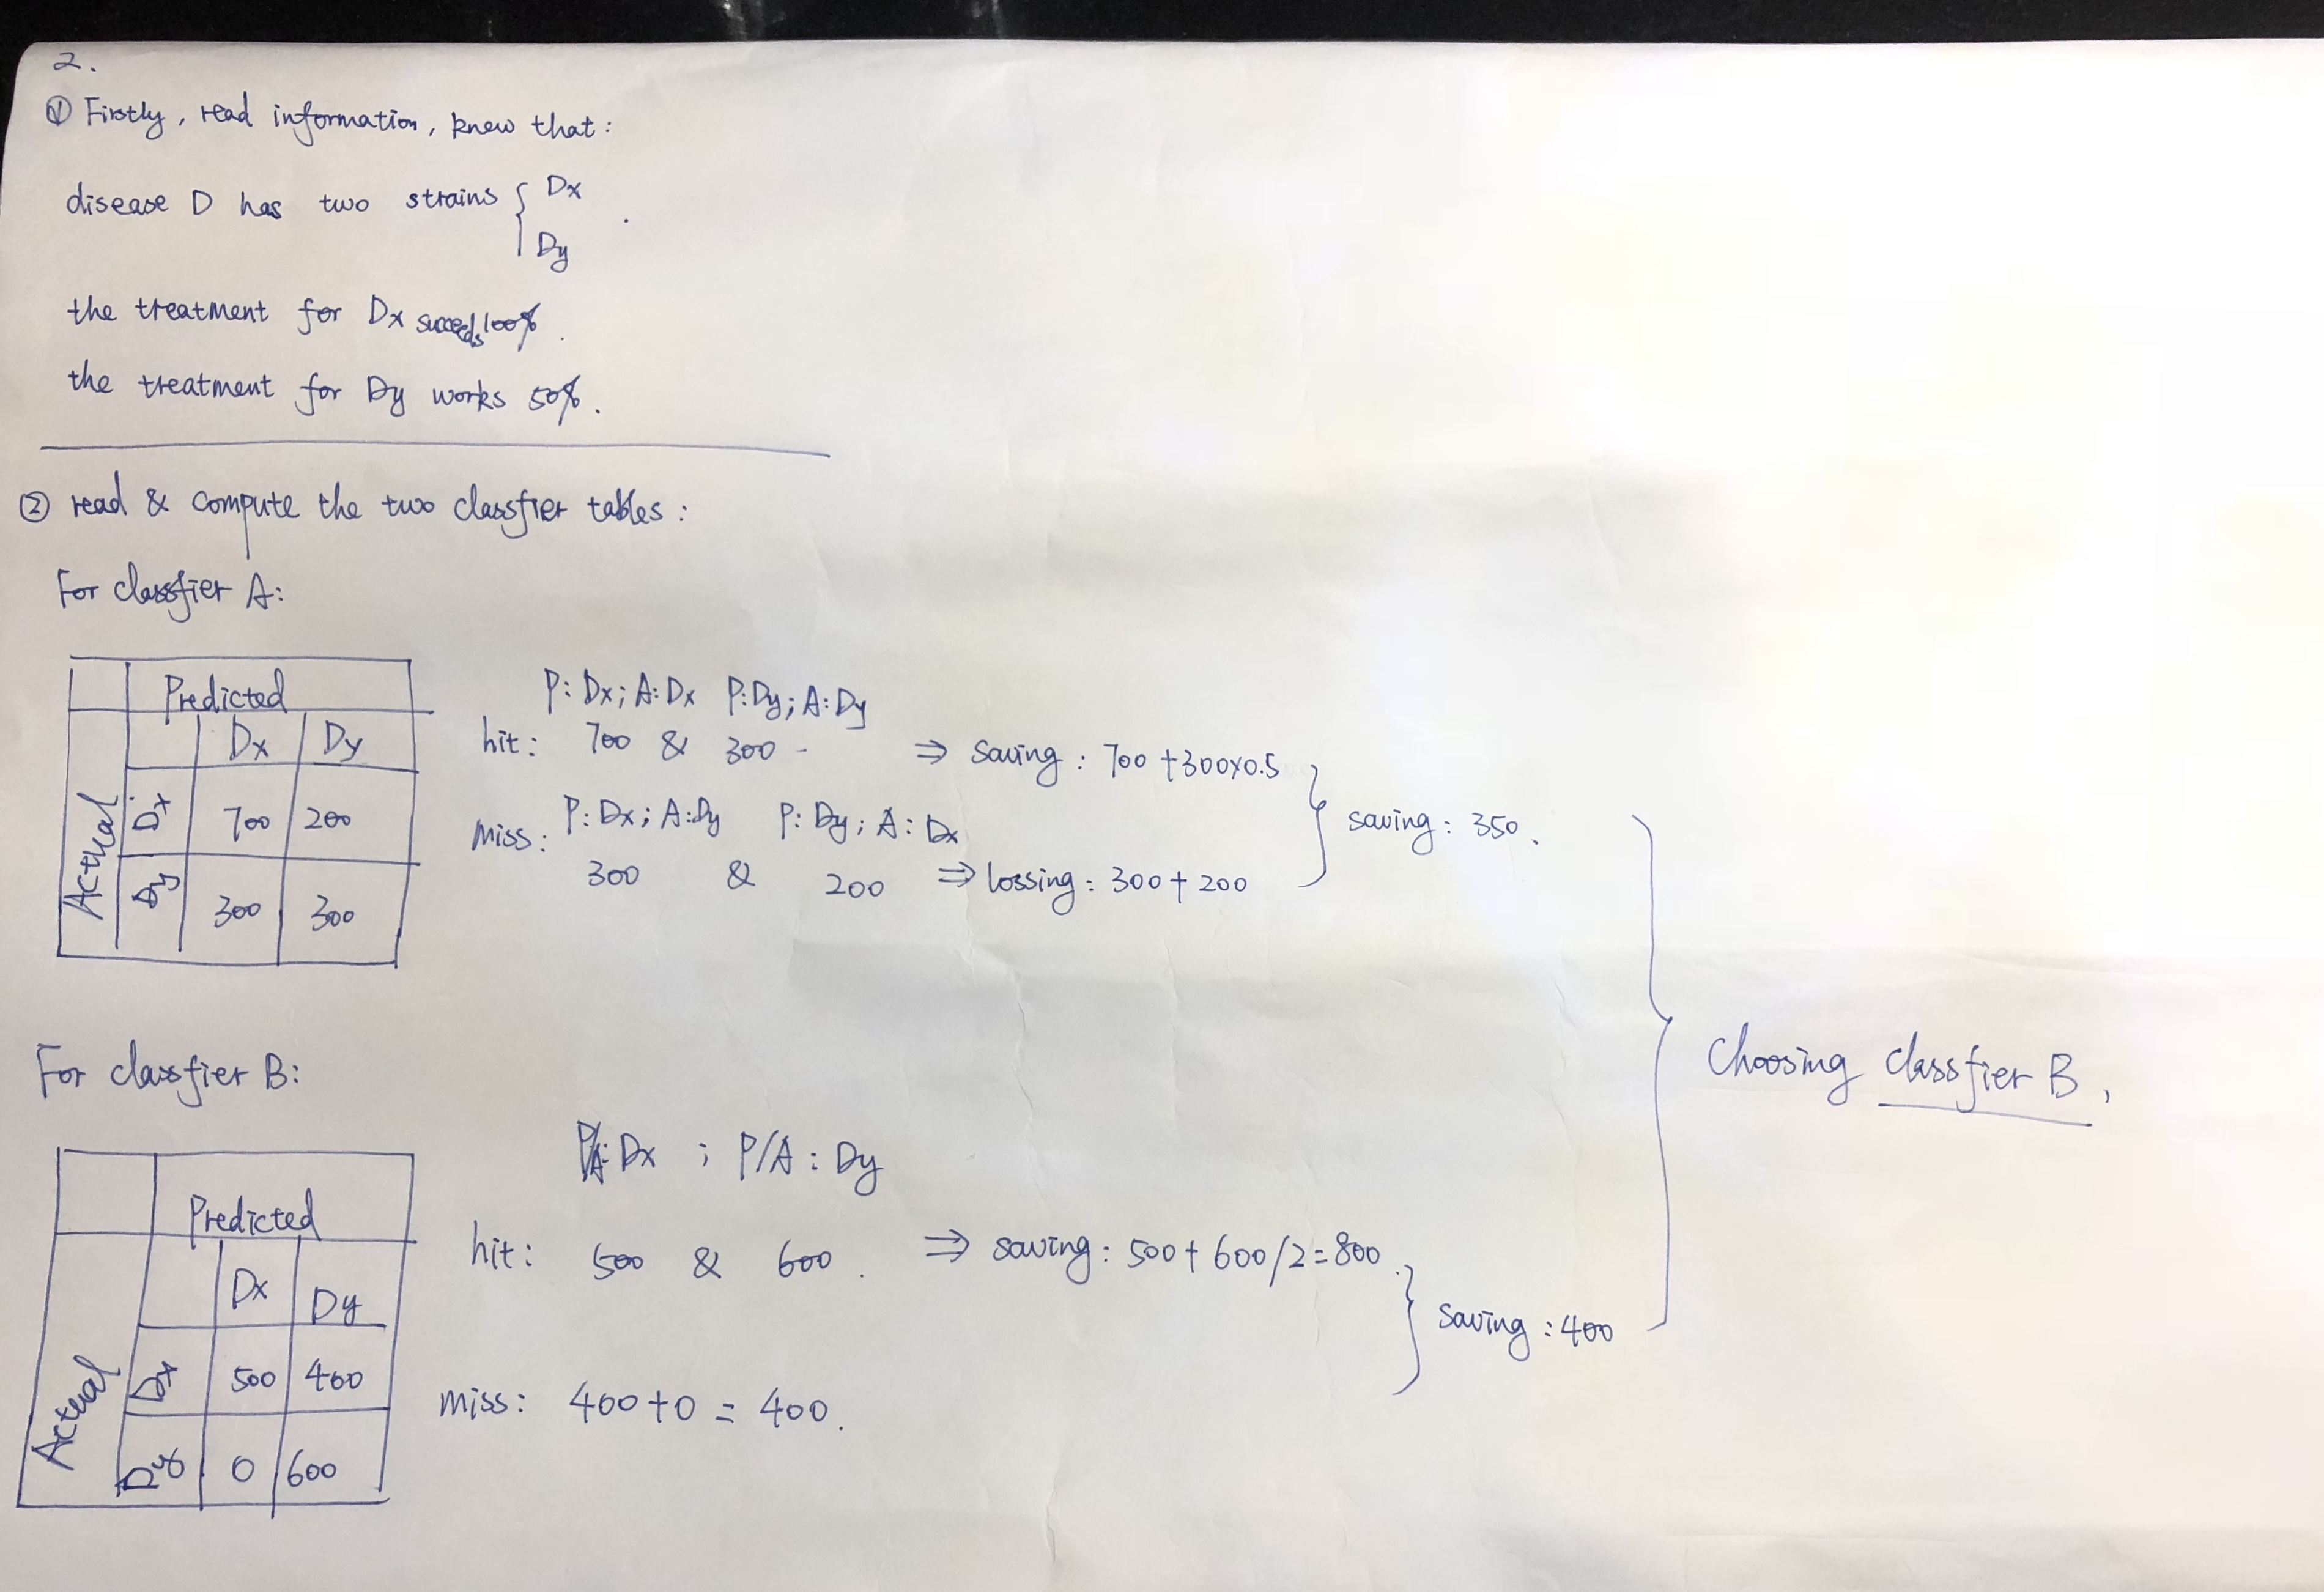 2.
① Firstly, read information, knew that:
disease D has two strains { Dx
Dy .
the treatment for Dx succeeds 100% .
the treatment for Dy works 50%.
② read & compute the two classfier tables:
For classfier A:
Predicted
Dx Dy
Actual
Dx 700 200
Dy 300 300
P: Dx; A: Dx P: Dy; A: Dy
hit: 700 & 300 ⇒ saving: 700 + 300×0.5
miss: P: Dx; A: Dy P: Dy; A: Dx
300 & 200 ⇒ lossing: 300 + 200
} saving: 350.
For classfier B:
Predicted
Dx Dy
Actual
Dx 500 400
Dy 0 600
P/A: Dx ; P/A: Dy
hit: 500 & 600. ⇒ saving: 500 + 600/2 = 800.
miss: 400 + 0 = 400.
} saving: 400
} Choosing classfier B.